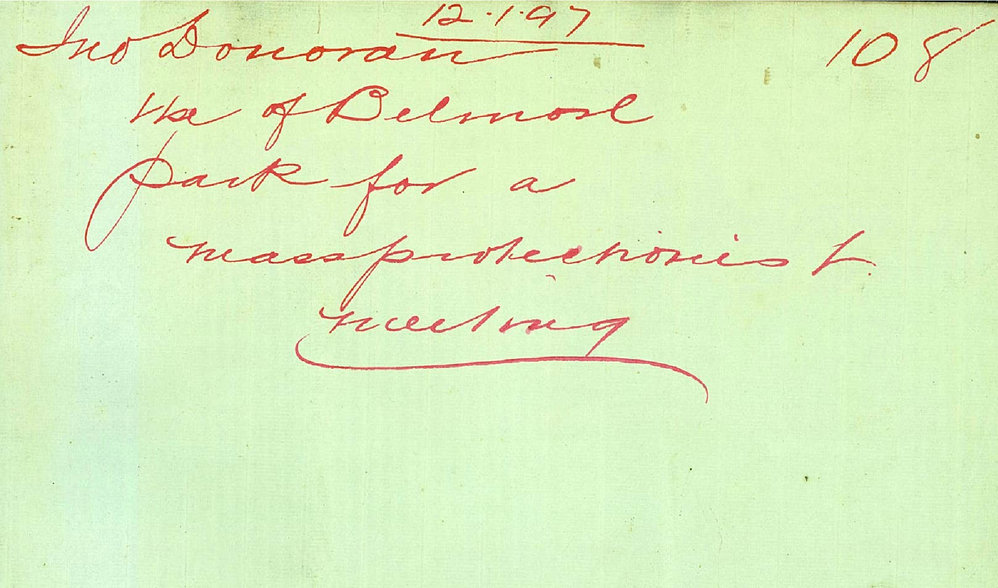 12.1.97
Jno Donovan
108
Use of Belmont
park for a
mass protectionist
meeting